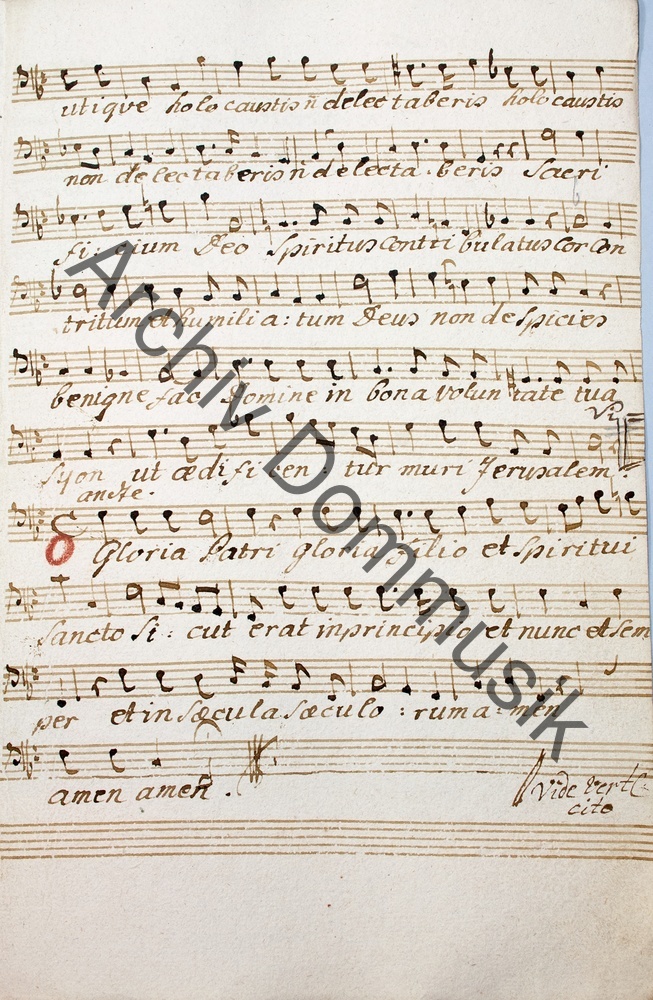 utiqve holocaustis ñ delectaberis holocaustis
non delectaberis ñ delecta . beris Sacri
fi : cium Deo Spiritus Contri bulatus Cor Con
tritum et humili a : tum Deus non despicies
benigne fac Domine in bona volun tate tua
Vi
Syon ut ædifi cen : tur muri Jerusalem .
ancte .
Gloria Patri gloria Filio et Spiritui
Sancto Si : cut erat in principio et nunc et sem
per et in sæcula sæculo : rum a = men
amen ameñ .
Vide vert
cito
Archiv Dommusik